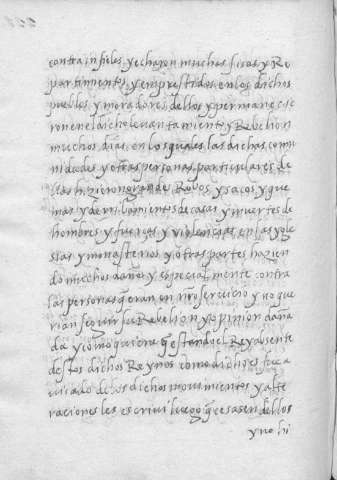 contra infieles, y echaron muchas sisas y Re
partimientos y emprestidos en los dichos
pueblos y moradores dellos y permanescie
ron en el dicho levantamiento y Rebelion
muchos dias, en los quales las dichas comu
nidades y otras personas particulares de
llas hizieron grandes Robos y sacos y que
mas y derribamientos de casas y muertes de
hombres y fuerças y violencias en las ygle
sias y monesterios y otras partes hazien
do muchos daños y especialmente contra
las personas que eran en nro servicio y no que
rian seguir su Rebelion y opinion daña
da y como quiera q estando el Rey absente
destos dichos Reynos como dicho es fue a
visado de los dichos movimientos y alte
raciones les escrivio luego q cesasen dellos
y no hi